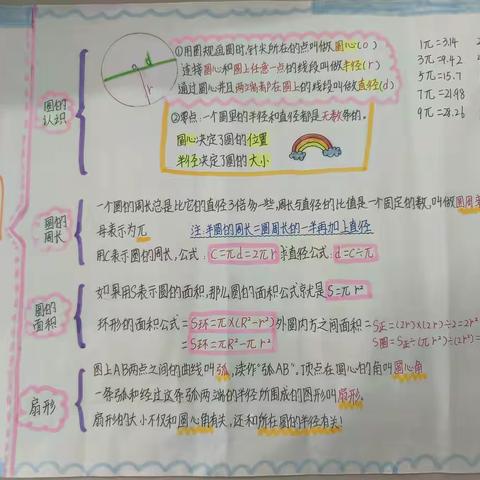 ①用圆规画圆时,针尖所在的点叫做圆心(O)
连接圆心和圆上任意一点的线段叫做半径(r)
通过圆心并且两端都在圆上的线段叫做直径(d)
d
r
1π=3.14
3π=9.42
5π=15.7
7π=21.98
9π=28.26
圆的
认识
②零点:一个圆里的半径和直径都是无数条的。
圆心决定了圆的位置
半径决定了圆的大小
圆的
周长
一个圆的周长总是比它的直径3倍多一些,周长与直径的比值是一个固定的数,叫做圆周率
母表示为π
注:半圆的周长=圆周长的一半再加上直径
用C表示圆的周长,公式:C=πd=2πr 求直径公式:d=C÷π
圆的
面积
如果用S表示圆的面积,那么圆的面积公式就是S=πr²
环形的面积公式=S环=π×(R²-r²)外圆内方之间面积=S正=(2r)×(2r)÷2=2r²
=S环=πR²-πr²
S圆=S正÷(πr²)÷(2r²)=
扇形
圆上AB两点之间的曲线叫弧,读作“弧AB”。顶点在圆心的角叫圆心角
一条弧和经过这条弧两端的半径所围成的图形叫扇形。
扇形的大小不仅和圆心角有关,还和所在圆的半径有关!